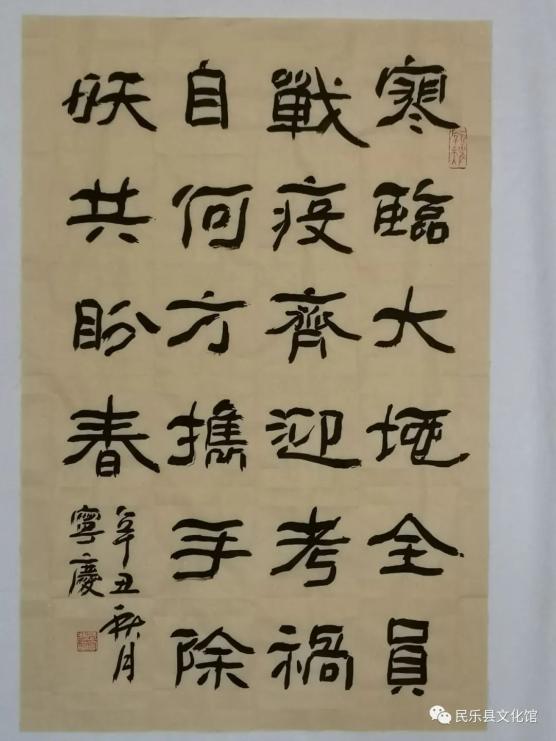 寒臨大地全員
戰疫齊迎考禍
自何方攜手除
妖共盼春
辛丑秋月
寧慶
民乐县文化馆